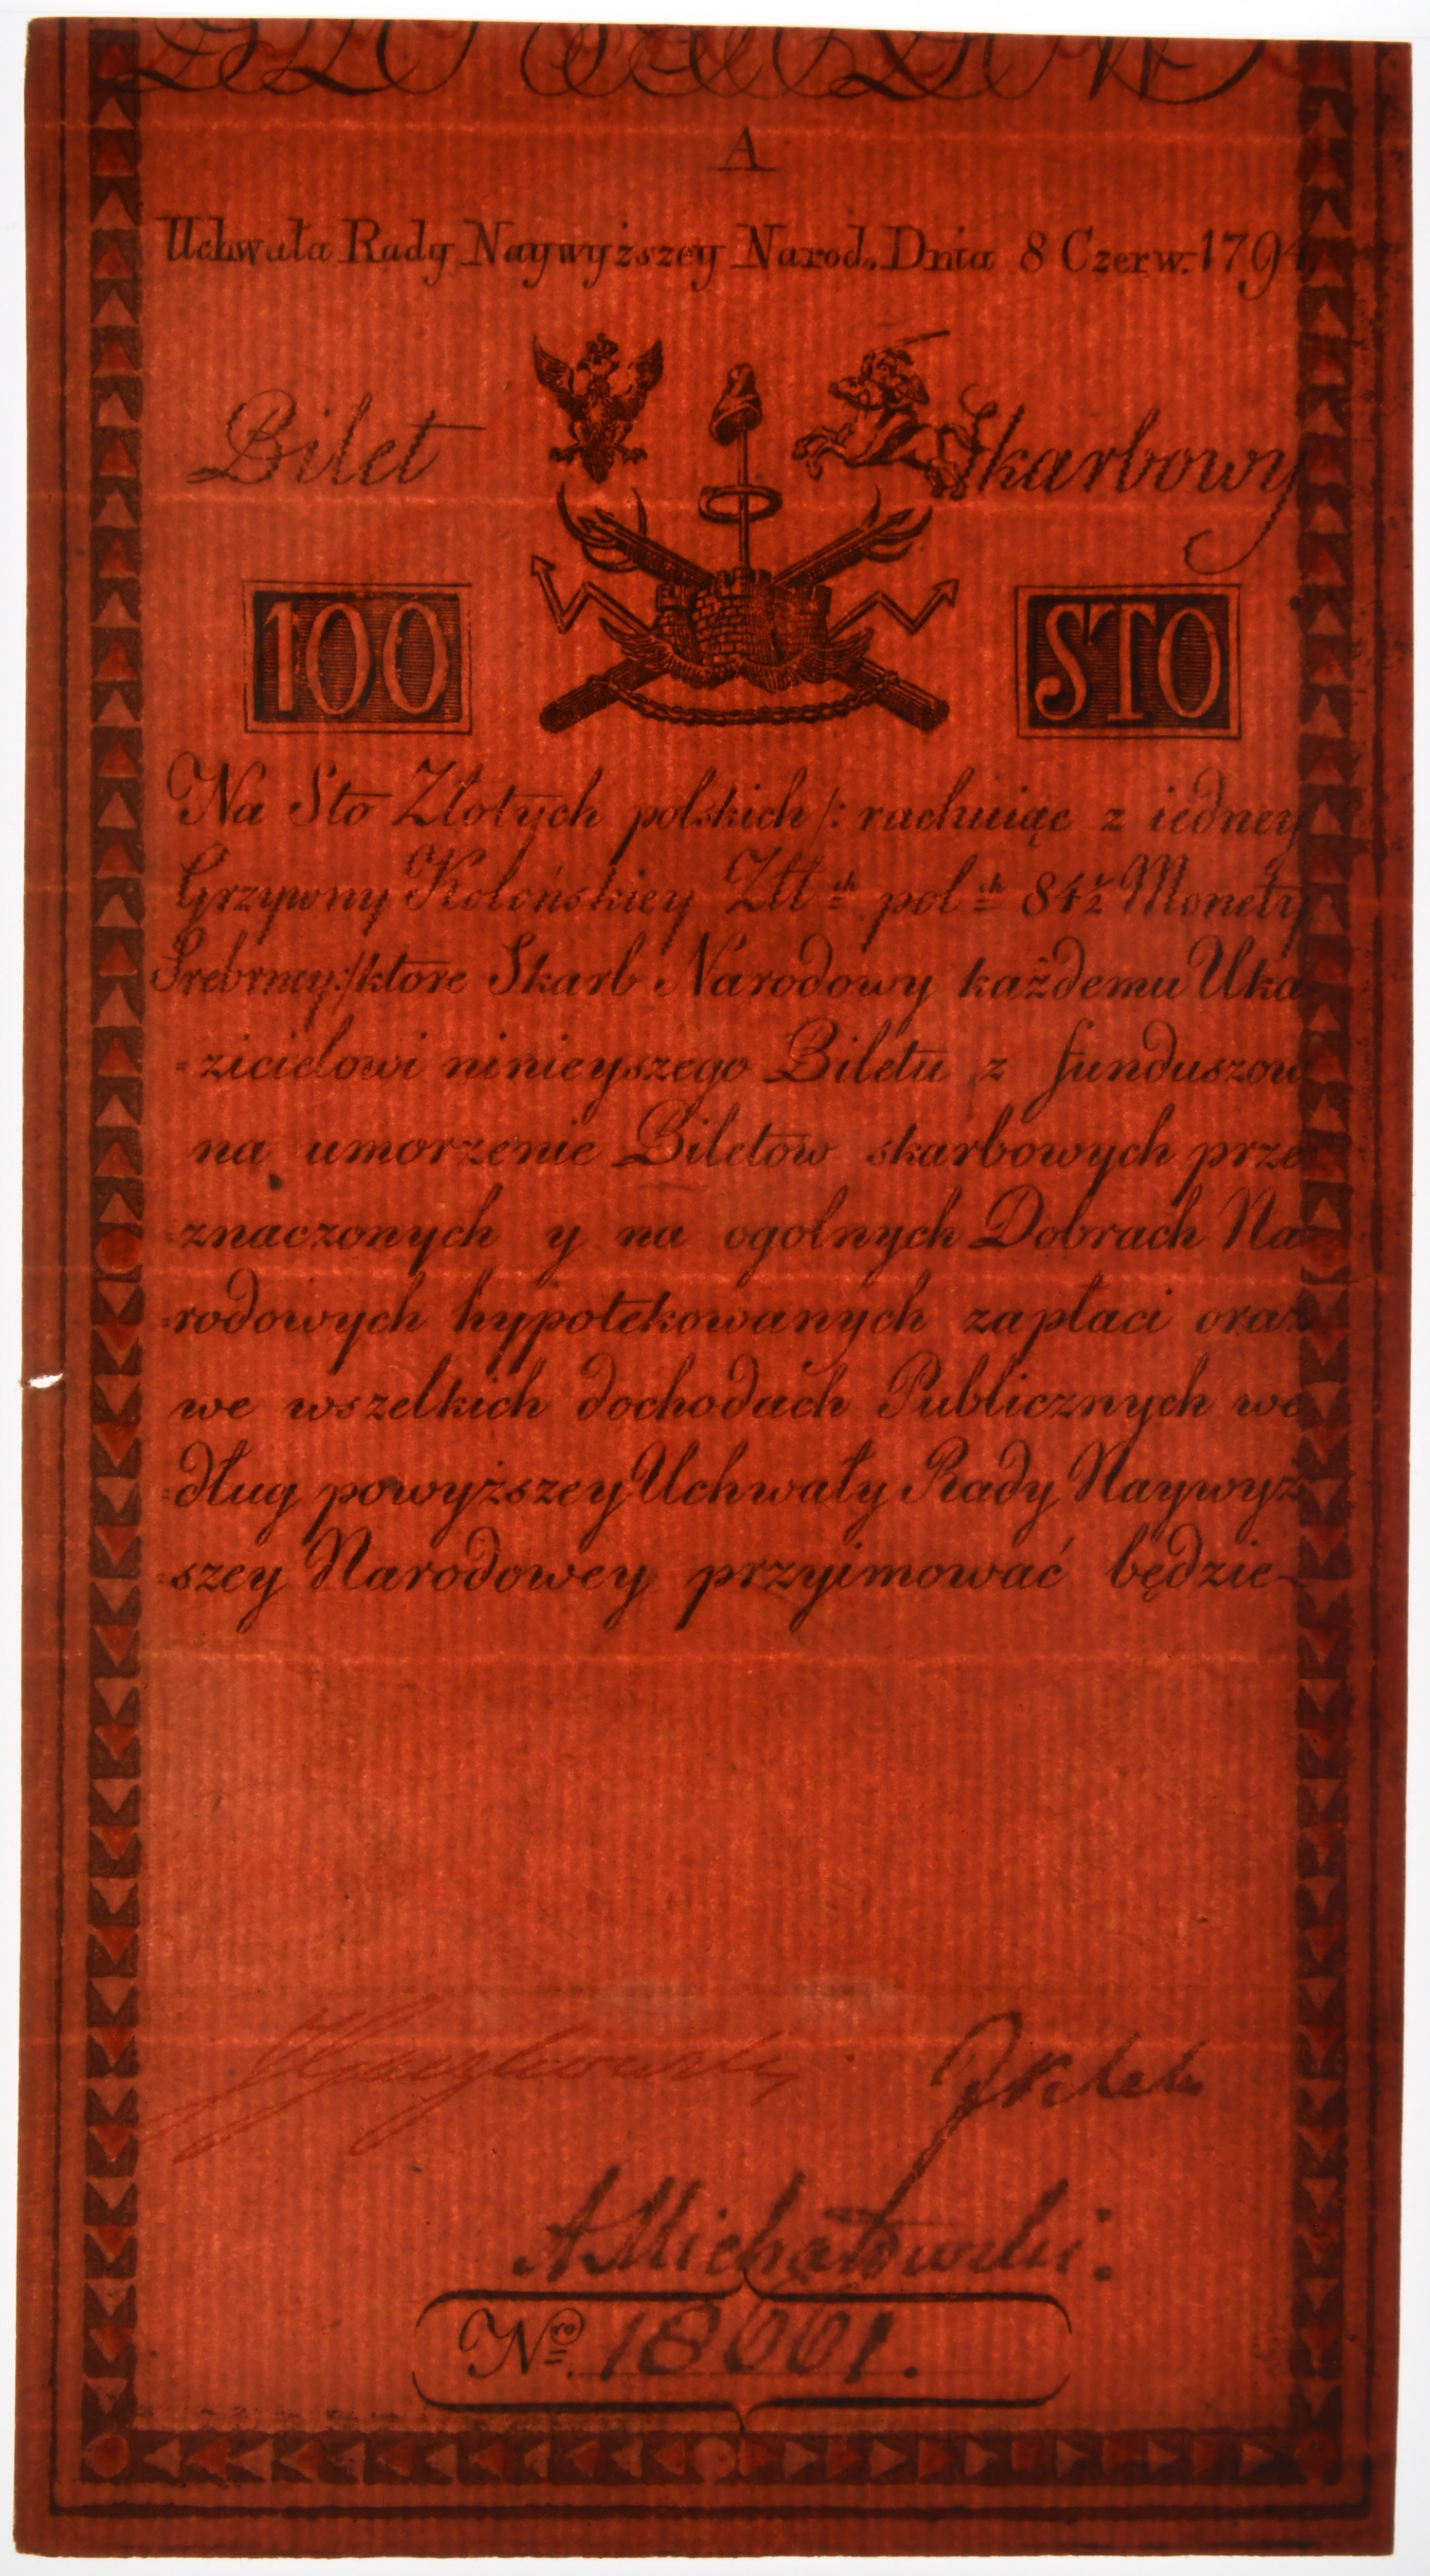 A
Uchwała Rady Naywyższey Narod. Dnia 8 Czerw. 1794.
Bilet Skarbowy
100 STO
Na Sto Złotych polskich /: rachuiąc z iedney
Grzywny Kolońskiey Złł ch pol ch 84½ Monety
Srebrney :/ ktore Skarb Narodowy każdemu Uka
=zicielowi ninieyszego Biletu z funduszow
na umorzenie Biletow skarbowych prze
=znaczonych y na ogolnych Dobrach Na
=rodowych hypotekowanych zapłaci oraz
we wszelkich dochodach Publicznych we
=dług powyższey Uchwały Rady Naywyż
=szey Narodowey przyimować będzie
A Michałowski.
Nro. 18661.